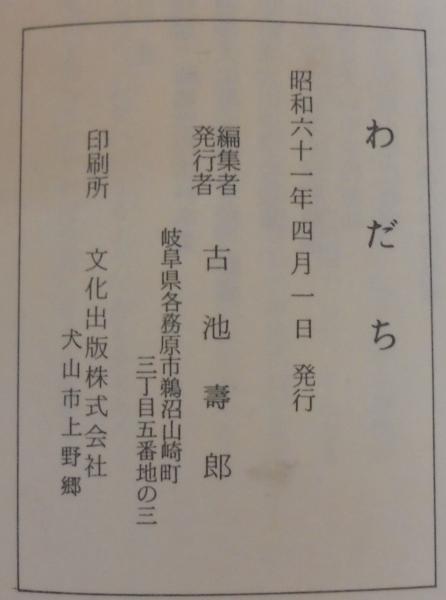 わだち
昭和六十一年四月一日 発行
編集者
発行者 古池壽郎
岐阜県各務原市鵜沼山崎町
三丁目五番地の三
印刷所 文化出版株式会社
犬山市上野郷